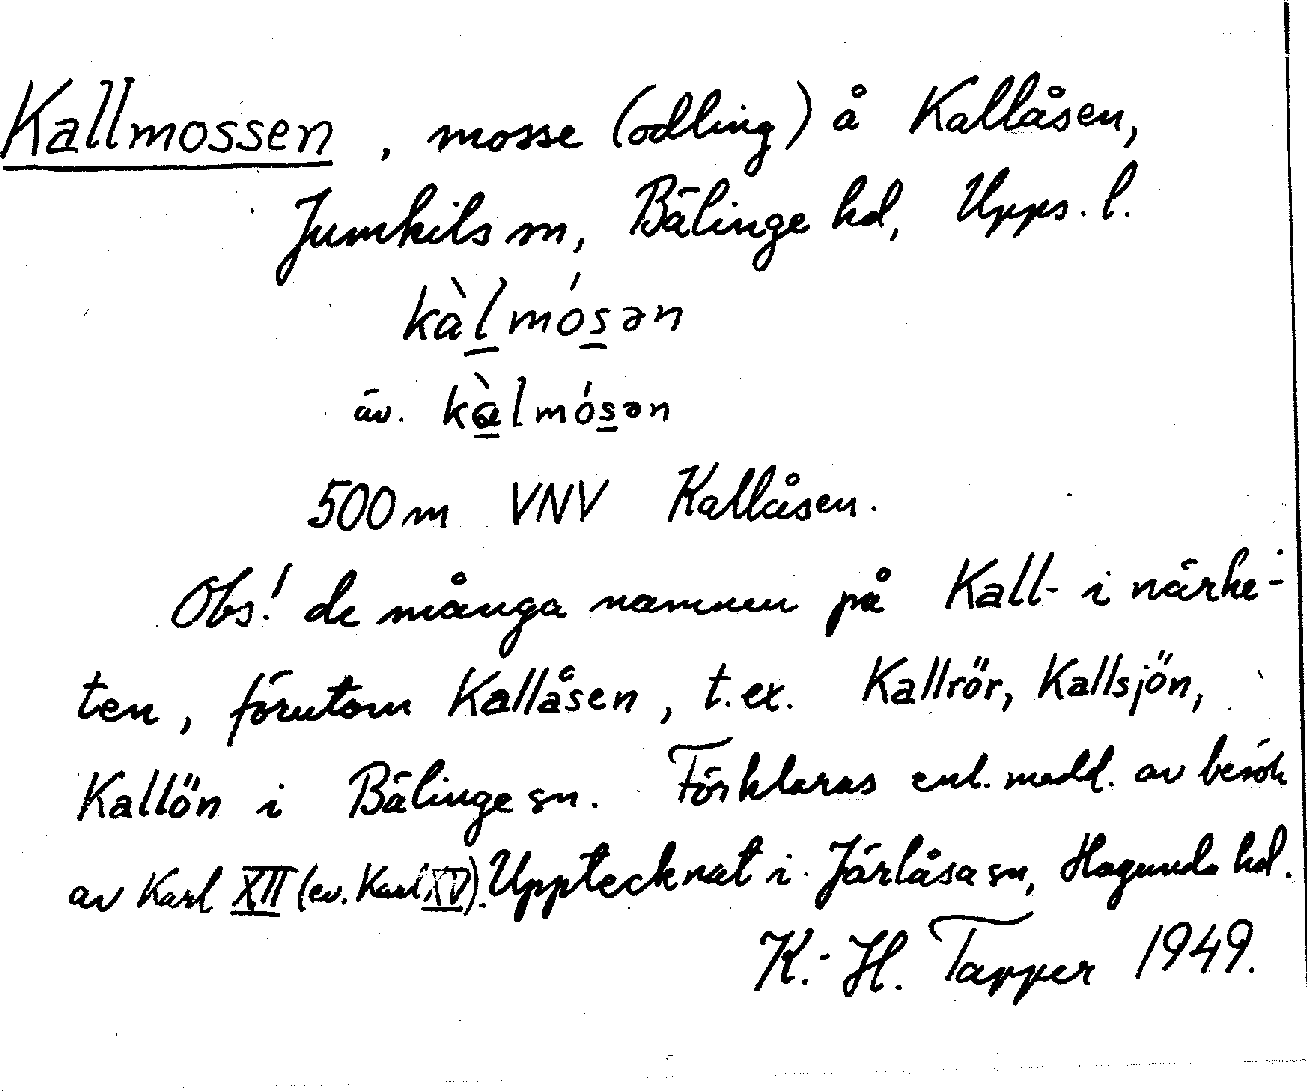 Kallmossen, mosse (odling) å Kallåsen,
Jumkils sn, Bälinge hd, Upps. l.
kàl̲mós̲ən
äv. kɑ̲̀lmós̲ən
500 m VNV Kallåsen.
Obs! de många namnen på Kall- i närhe-
ten, förutom Kallåsen, t.ex. Kallrör, Kallsjön,
Kallön i Bälinge sn. Förklaras enl. medd. av besök
av Karl XII (ev. Karl XV). Upptecknat i Järlåsa sn, Hagunda hd.
K.-H. Tapper 1949.